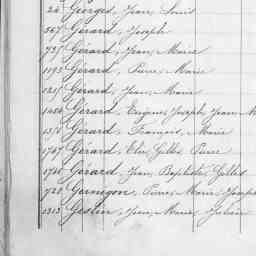 24 Georges, Jean, Louis
567 Gérard, Joseph
737 Gérard, Jean, Marie
1193 Gérard, Pierre, Marie
1215 Gérard, Jean, Marie
1456 Gérard, Eugène, Joseph, Jean, M
1517 Gérard, François, Marie
1767 Gérard, Elie, Gilles, Pierre
1710 Gérard, Jean, Baptiste, Gilles
728 Germigon, Pierre, Marie, Joseph
1313 Gestin, Jean, Marie, Julien